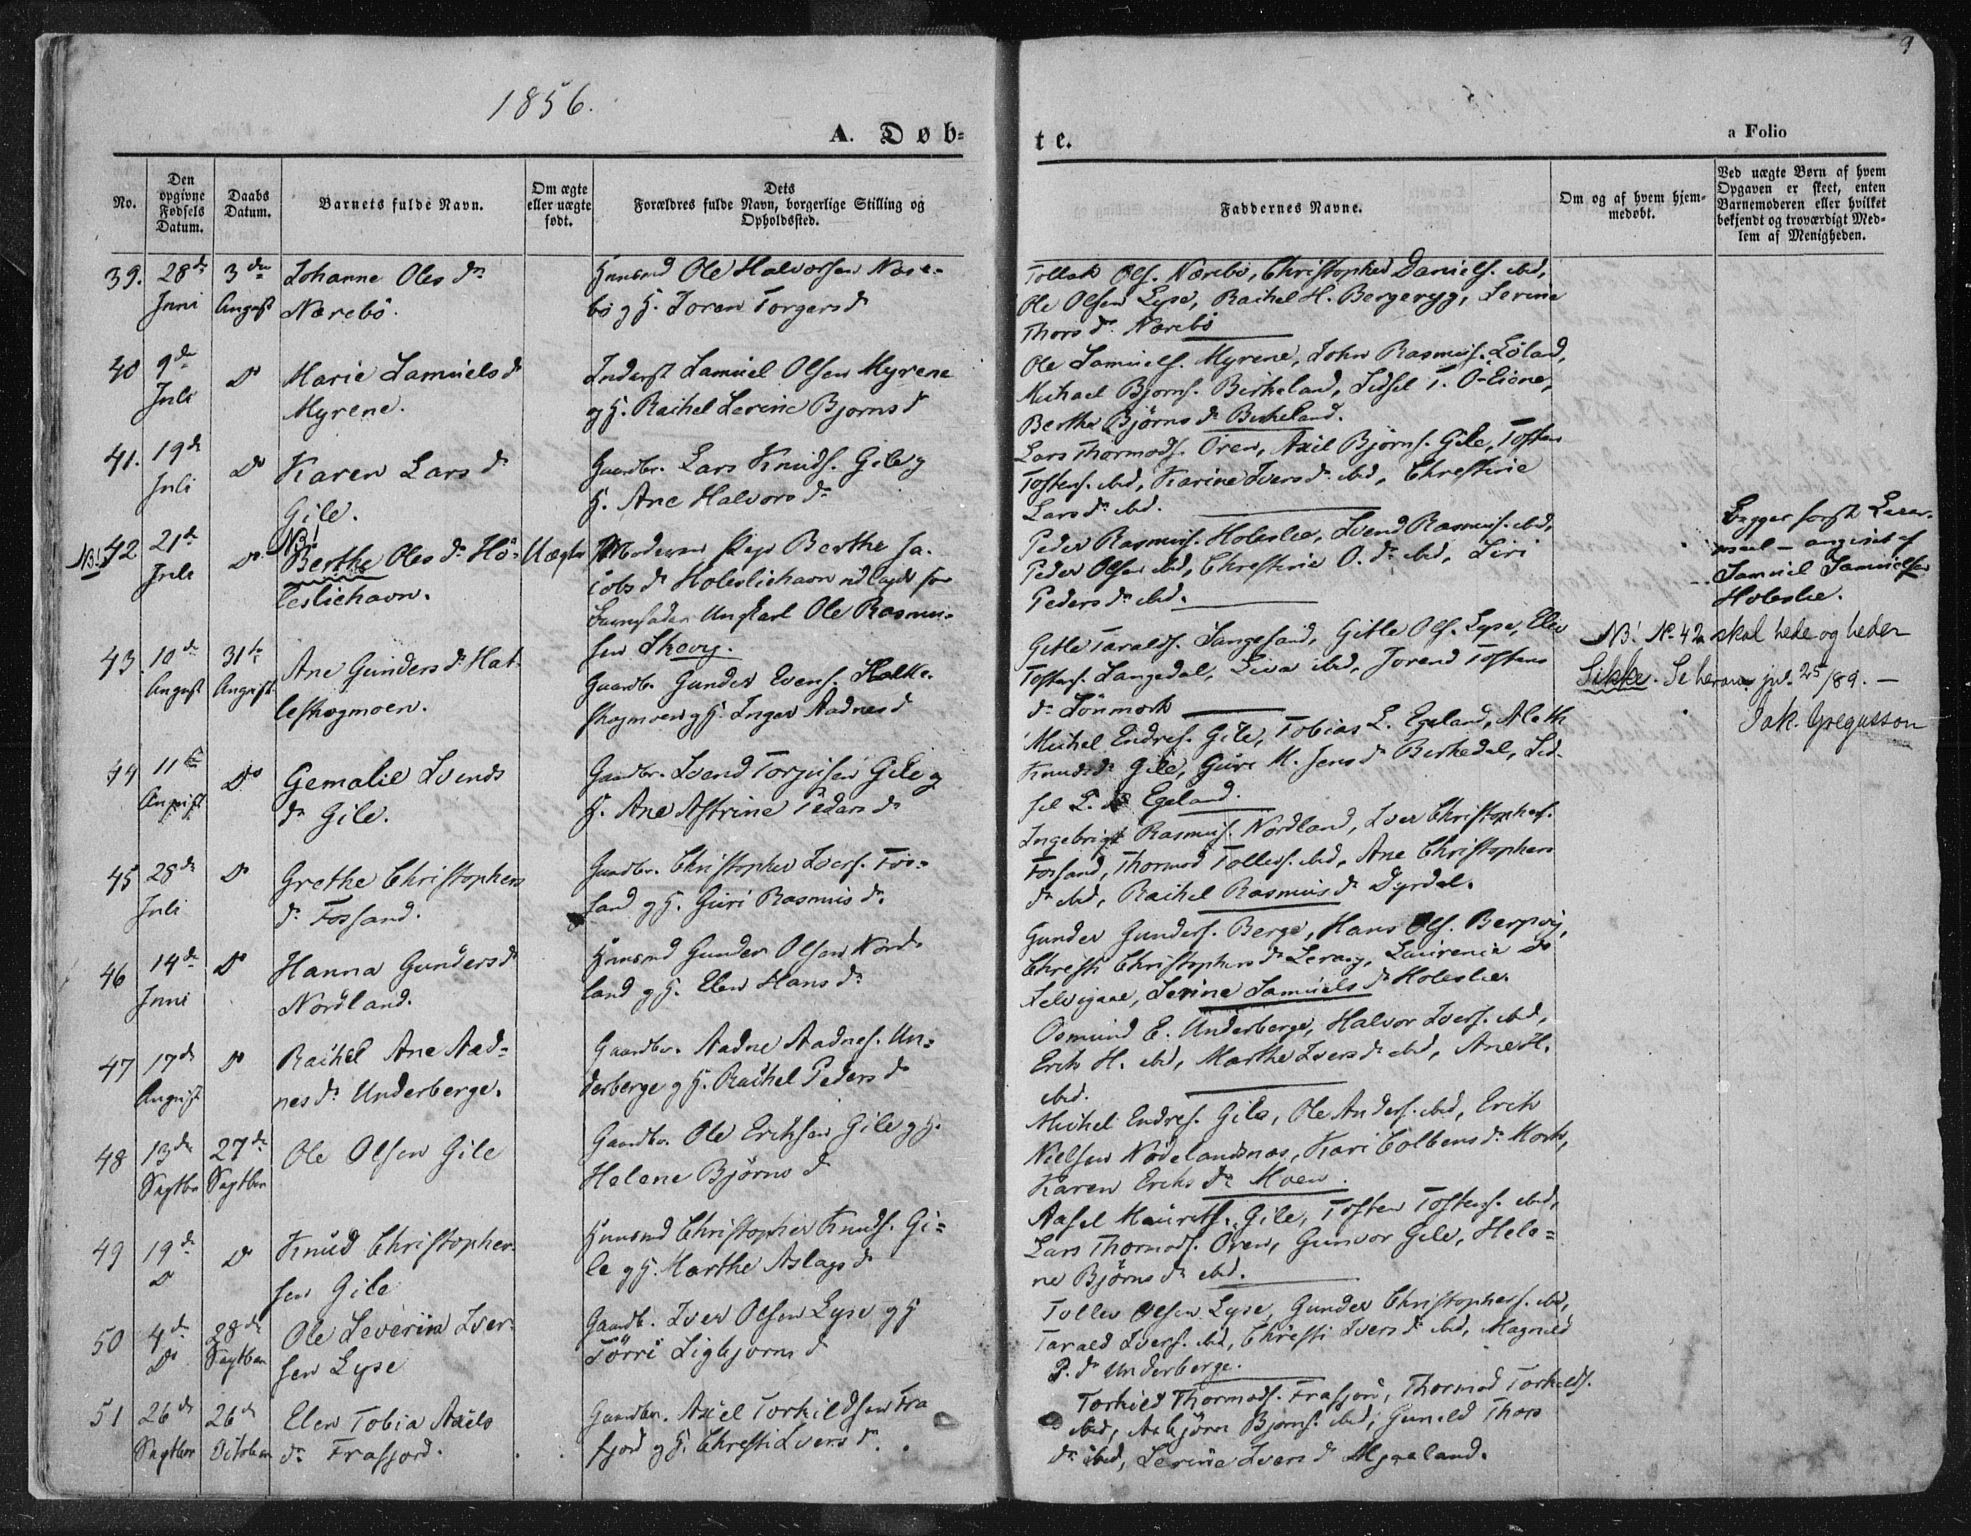 1856.
9
A. Døb-
te.
a Folio
No.
Den
opgivne
Fødsels
Datum.
Daabs
Datum.
Barnets fulde Navn.
Om ægte
eller uægte
født.
Dets
Forældres fulde Navn, borgerlige Stilling og
Opholdssted.
Faddernes Navne.
Om og af hvem hjem-
medøbt.
Ved uægte Børn af hvem
Opgaven er skeet, enten
Barnemoderen eller hvilket
bekjendt og troværdigt Med-
lem af Menigheden.
39. 28de Juni
3die August
Johanne Olesdr
Nærebö.
Huusmd Ole Halvorsen Nære-
bö og H. Toren Torgersdr
Tollak Ols. Nærebö, Christopher Daniels. ibid,
Ole Olsen Lyse, Rachel H. Bergeryg, Serine
Thorsdr Nærebö
40 9de Juli
Do
Marie Samuelsdr
Myrene.
Inderst Samuel Olsen Myrene
og H. Rachel Serine Bjornsdr
Ole Samuels. Myrene, John Rasmus. Eölad,
Michael Bjorns. Birkeland, Sidsel T.
Berthe Björnsdr Birkeland.
41. 19de Juli
Do
Karen Larsdr
Gile.
Gaardbr. Lars Knuds. Gile og
H. Ane Halvorsdr
Lars Thormods. Ören, Axil Björns. Gile, Tosten
Tostens. ibid, Karine Iversdr ibid, Christine
Larsdr ibid.
NB! 42 21de Juli
Do
NB!
Berthe Olesdr Hö-
leslichavn.
Uægte
Moderen Pige Berthe Ja-
cobsdr Holeslichavn udlagde som
Barnefader Ungkarl Ole Rasmu-
sen Skavy.
Peder Rasmus. Holeslie, Svend Rasmus. ibid,
Peder Olsen ibid, Christine O.dr ibid, Siri
Pedersdr ibid.
Samuel Samuelsen
Holeslie.
NB! No. 42 skal hede og heder
Sikke. Se herom jul. 25/89. —
Jak. Gregusson
43. 10de August
31te August
Ane Gundersdr Hat-
leskogmoen.
Gaardb. Gunder Evens. Hatle-
skogmoen og H. Inger Aadnesdr
Gitle Taralds. Sangesand, Gitle Ols. Lyse, Elev
Tostens. Sangedal, Siva ibid, Jorend Tostens
dr Lönmork
44 11te August
Do
Gemalie Svends
dr Gile.
Gaardbr. Svend Torjusen Gile og
H. Ane Astrine Pedersdr
Michel Endres. Gile, Tobias L. Egeland, Aleth
Knudsdr Gile, Guri M. Jensdr Birkedal, Sid-
sel L. dr Egeland.
45 28de Juli
Do
Grethe Christophers
dr Fossand.
Gaardbr. Christopher Ivers. Fos-
sand og H. Guri Rasmusdr.
Ingebrigt Rasmus. Nordland, Iver Christophers.
Fossand, Thormod Tollers. ibid, Ane Christophers
dr ibid, Rachel Rasmusdr Dyrdal.
46 14de Juni
Do
Hanna Gundersdr
Nordland.
Huusmd Gunder Olsen Nord-
land og H. Elen Hansdr
Gunder Gunders. Berge, Hans Ols. Bergvig,
Christi Christophersdr Levaag, Laurenia Do
Selvigaae, Serine Samuelsdr Holeslie.
47 17de August
Do
Rachel Ane Aad-
nesdr Underberge.
Gaardbr. Aadne Aadnes. Un-
derberge og H. Rachel Pedersdr
Osmund E. Underberge, Halvor Ivers. ibid,
Erik H. ibid, Marthe Iversdr ibid, Ane H.
ibid.
48 13de Septbr
27de Septber
Ole Olsen Gile
Gaardbr. Ole Eriksen Gile og H.
Helene Björnsdr
Michel Endres. Gile, Ole Anders. ibid, Erik
Nielsen Nödelandsnæs, Kari Colbensdr Mork,
Karen Eriksdr Moen.
49 19de Do
Do
Knud Christopher-
sen Gile
Huusmd Christopher Knuds. Gi-
le og H. Marthe Aslagsdr
Aasel Maurits. Gile, Tosten Tostens. ibid,
Lars Thormods. Ören, Gunvor Gile, Hele-
ne Björnsdr ibid.
50 4de Do
28de Septber
Ole Severin Iver-
sen Lyse
Gaardb. Iver Olsen Lyse og H
Törri Sigbjornsdr
Tollev Olsen Lyse, Gunder Christophers. ibid,
Tarald Ivers. ibid, Christi Iversdr ibid, Magnild
P.dr Underberge.
51 26de Septbr
26de October
Elen Tobia Axels
dr Frafjord.
Gaardbr. Axel Torkildsen Fra
fjord og H. Christi Iversdr.
Torkild Thormods. Frafjord, Thormod Torkelds.
ibid, Asbjörn Bjorns. ibid, Gunild Thors
dr ibid, Serine Iversdr Mjaaland.